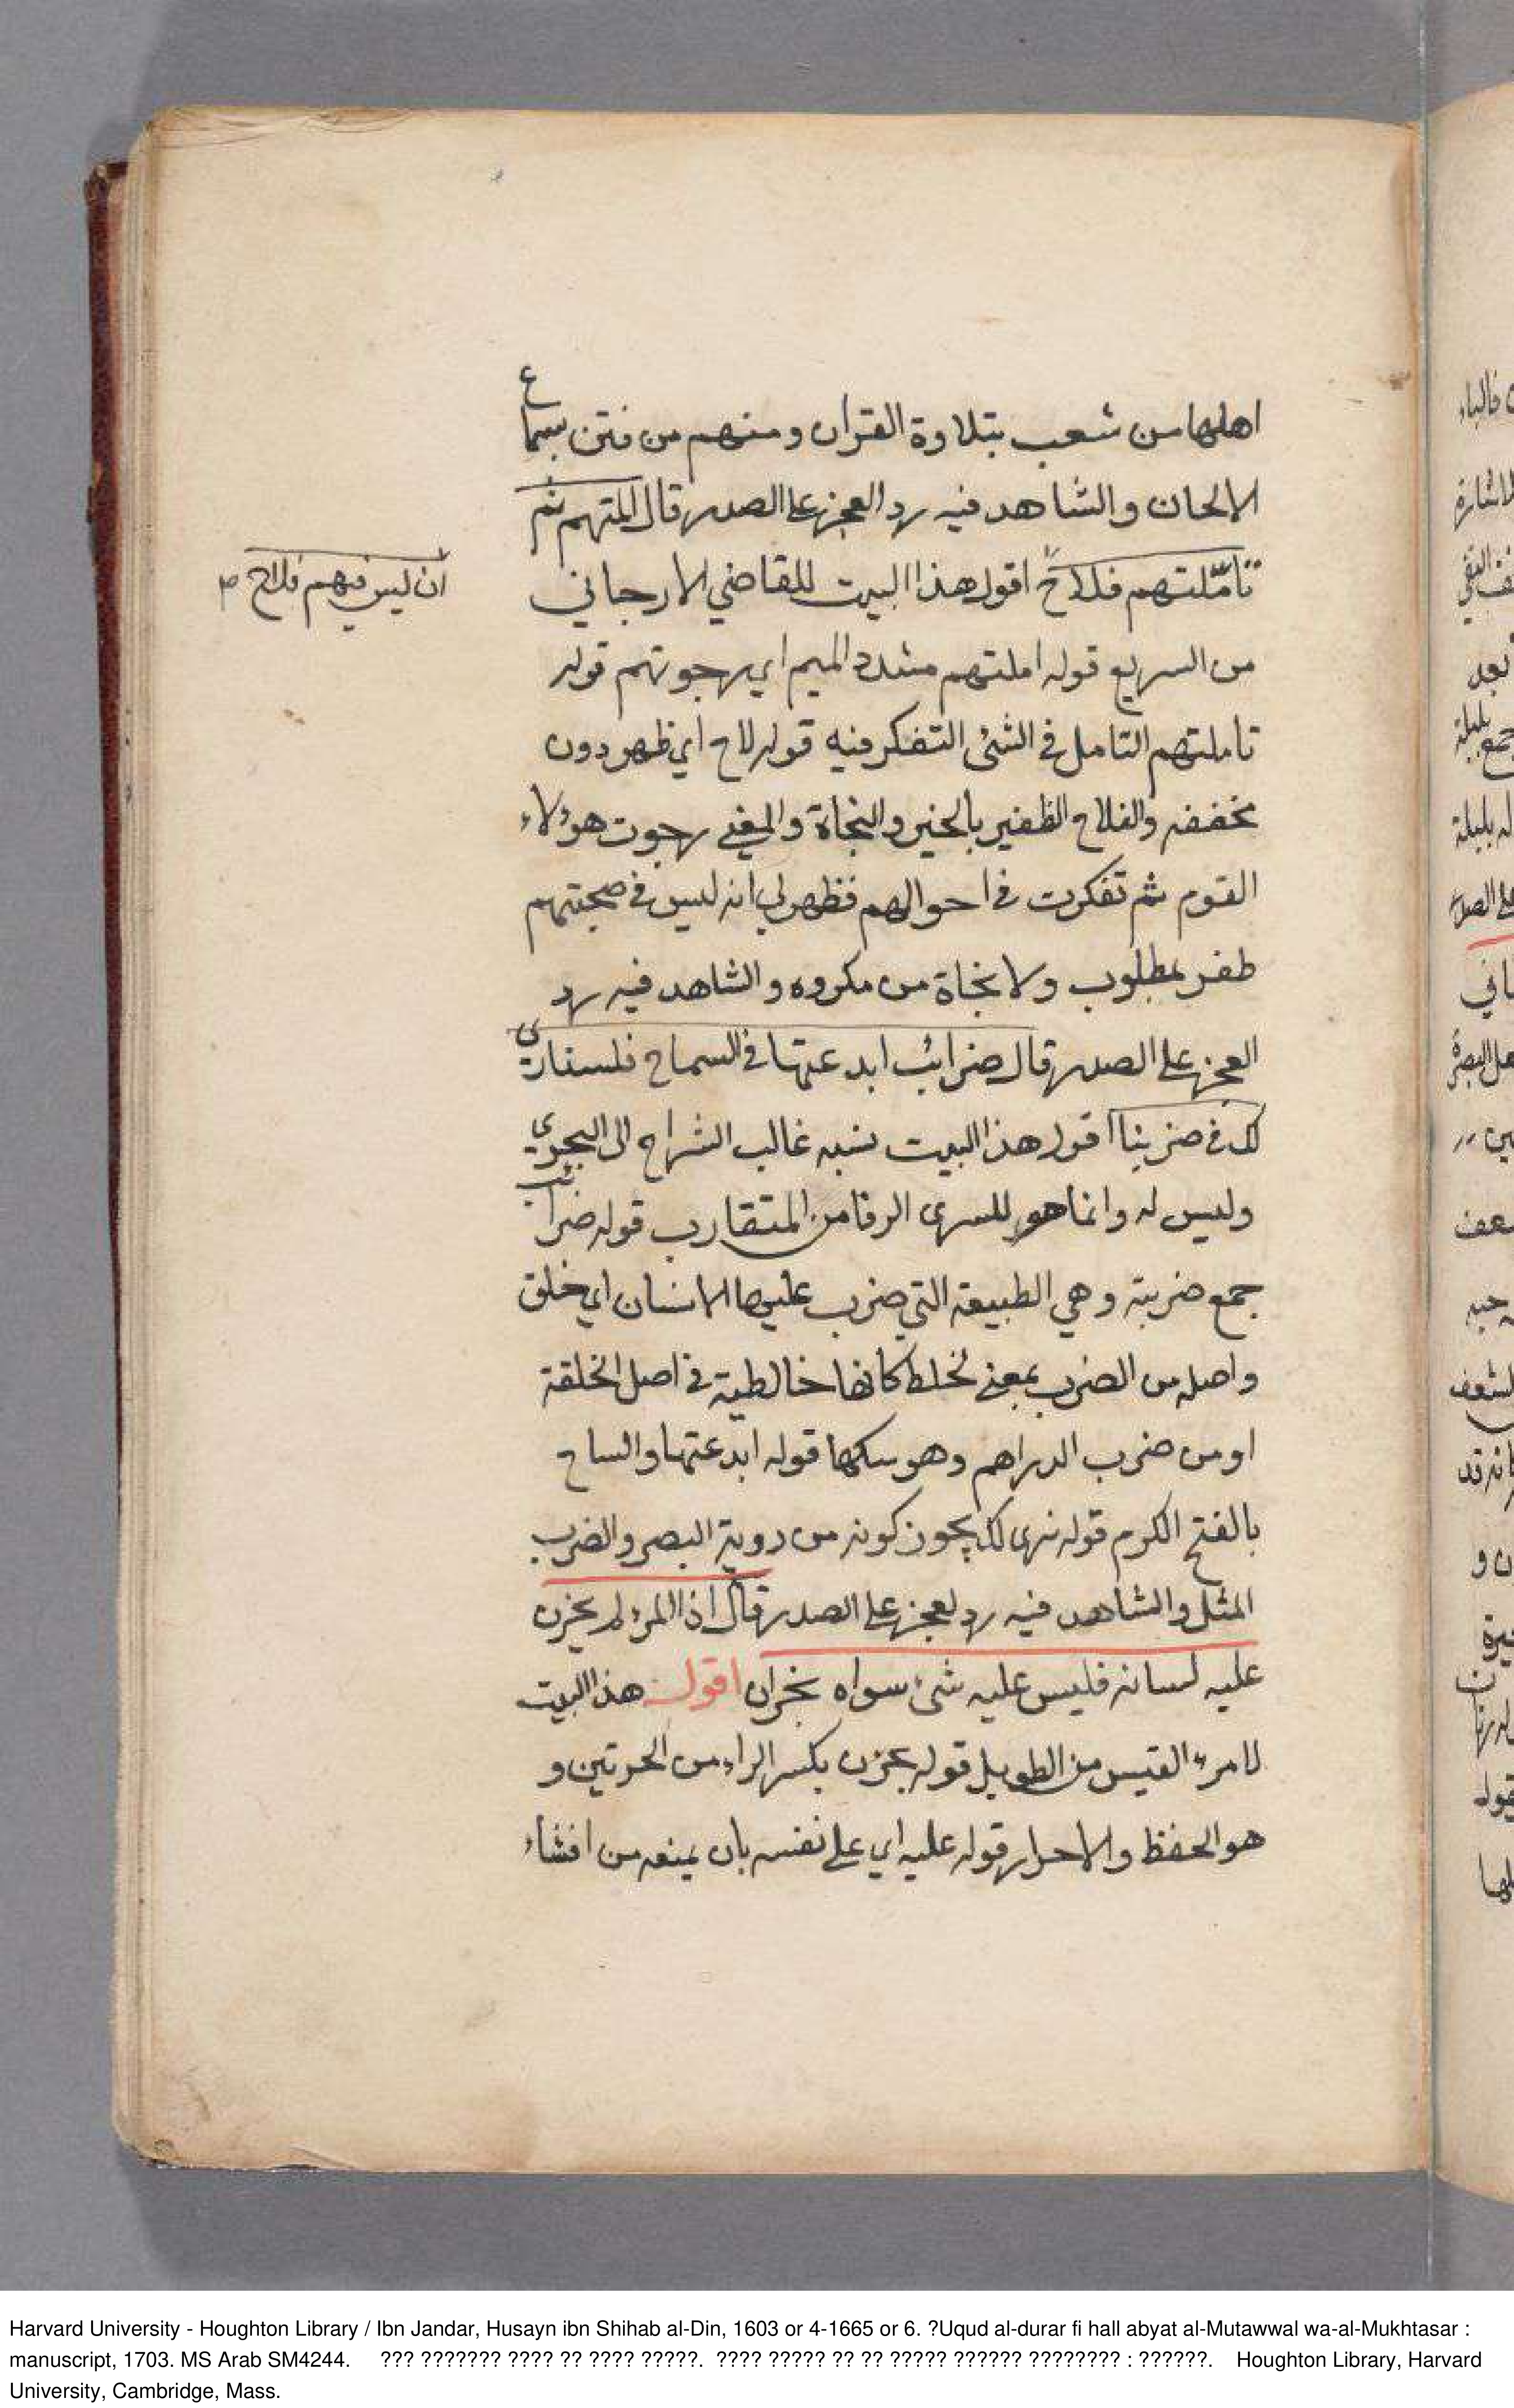 اهلها من شعب بتلاوة القران ومنهم من فتن بسماع
الالحان والشاهد فيه رد العجز على الصدر قال املتهم ثم
تاملتهم فلاح اقول هذا البيت للقاضي الارجاني
ان ليس فيهم فلاح
من السريع قوله املتهم مشدد الميم اي رجوتهم قوله
تاملتهم التامل في الشئ التفكر فيه قوله لاح اي ظهر ودون
مخففه والفلاح الظفير بالخير والنجاة والمعني رجوت هؤلاء
القوم ثم تفكرت في احوالهم فظهر لي انه ليس في صحبتهم
ظفر بمطلوب ولا نجاة من مكروه والشاهد فيه رد
العجز على الصدر قال ضرائب ابدعتها في السماح فلسنا نرى
لك في ضربنا اقول هذا البيت نسبه غالب الشراح الى البحتري
وليس له وانما هو للسرى الرفا من المتقارب قوله ضرائب
جمع ضريبة وهي الطبيعة التي ضرب عليها الانسان اي خلق
واصله من الضرب بمعنى خلط كانها خالطته في اصل الخلقة
او من ضرب الدراهم وهو سكها قوله ابدعتها والسماح
بالفتح الكرم قوله نرى لك يجوز كونه من روية البصر والضرب
المثل والشاهد فيه رد لعجز على الصدر قال اذا المرء لم يخزن
عليه لسانه فليس عليه شئ سواه بخزان اقول هذا البيت
لامرء القيس من الطويل قوله يخزن بكسر الراء من الحرتين و
هو الحفظ والاحراز قوله عليه اي على نفسه بان يمنعه من افشاء
Harvard University - Houghton Library / Ibn Jandar, Husayn ibn Shihab al-Din, 1603 or 4-1665 or 6. ?Uqud al-durar fi hall abyat al-Mutawwal wa-al-Mukhtasar :
manuscript, 1703. MS Arab SM4244. ??? ??????? ???? ?? ???? ?????. ???? ????? ?? ?? ????? ?????? ???????? : ??????. Houghton Library, Harvard
University, Cambridge, Mass.